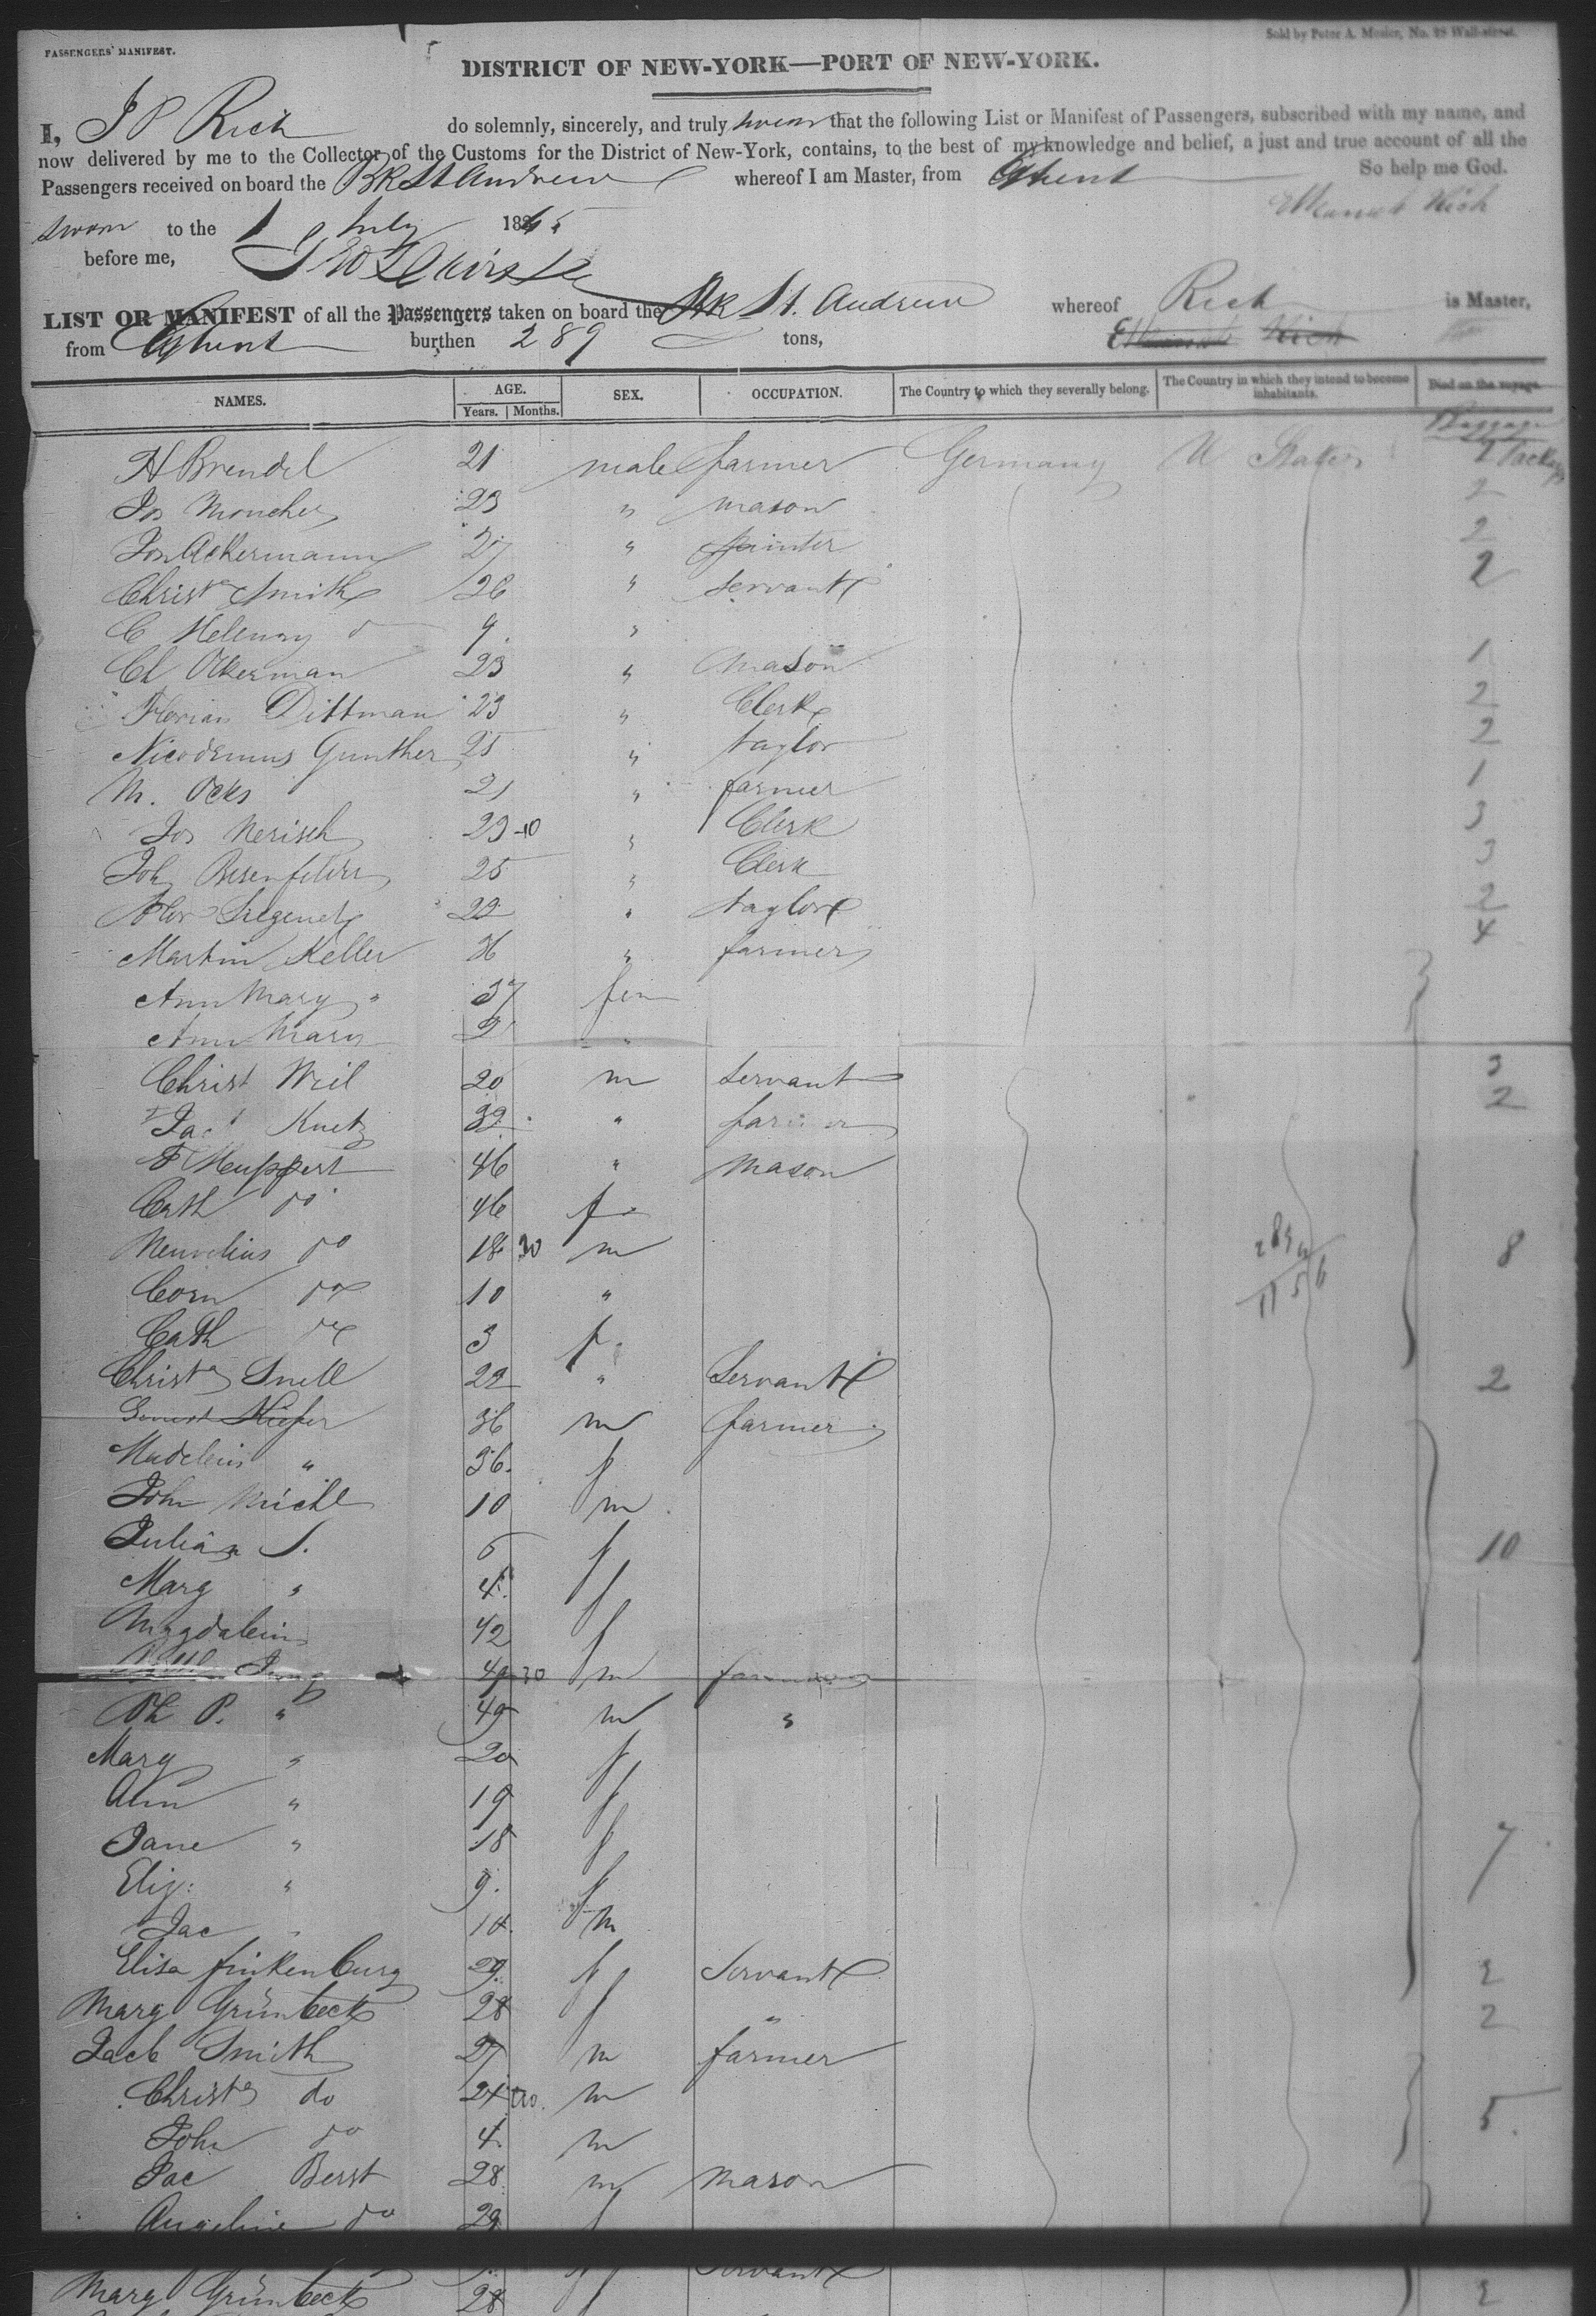 PASSENGERS' MANIFEST.
Sold by Peter A. Mesier, No. 28 Wall-street.
DISTRICT OF NEW-YORK—PORT OF NEW-YORK.
I, J P Rich do solemnly, sincerely, and truly swear that the following List or Manifest of Passengers, subscribed with my name, and
now delivered by me to the Collector of the Customs for the District of New-York, contains, to the best of my knowledge and belief, a just and true account of all the
Passengers received on board the Bk St Andrew whereof I am Master, from Ghent So help me God.
Rich
sworn to the 1 July 1845
before me,
LIST OR MANIFEST of all the Passengers taken on board the Bk St. Andrew whereof Rich is Master,
from Ghent burthen 289 tons, Rich
NAMES. AGE. SEX. OCCUPATION. The Country to which they severally belong. The Country in which they intend to become inhabitants. Died on the voyage.
Years. Months. Baggage
H Brendel 21 male farmer Germany U States 2 Packgs
Jos Moncher 23 " mason 2
Jos Ackermann 27 " 2
Christn Smith 26 " servant 2
C Helenay do 9 "
Ch Okerman 23 " Mason 1
Florian Dittman 23 " Clerk 2
Nicodemus Gunther 25 " taylor 2
M. Ocks 21 " farmer 1
Jos Nerisch 23 10 " Clerk 3
Joh 25 " Clerk 3
Flor 22 " taylor 2
Martin Keller 36 " farmer 4
Ann Mary " 37 fem
Ann Mary 2 "
Christ Weil 20 m servant 3
Jac Kuetz 32 " farmer 2
46 " Mason
Cath do 46 f
do 18 30 m 8
Corn do 10 "
Cath do 3 f
Christn Snell 22 " Servant 2
2894
1156
Kiefer 36 m farmer
Madelein " 36 f
John Michl 10 m
Julian S. 6 f 10
Marg " 4 f
Magdalein 42 f
Jung 49 30 m farmer
Ph P. " 49 m "
Mary " 20 f
Ann " 19 f
Jane " 18 f 7
Eliz: " 9 f
Jac " 10 m
Elisa finkenburg 29 f Servant 2
Marg Grünbeck 28 f " 2
Jacb Smith 27 m farmer
Christn do 24 m 5
John do 4 m
Jac Berst 28 m Mason
Angeline do 29 f
Servant
Marg Grünbeck 28 f 2